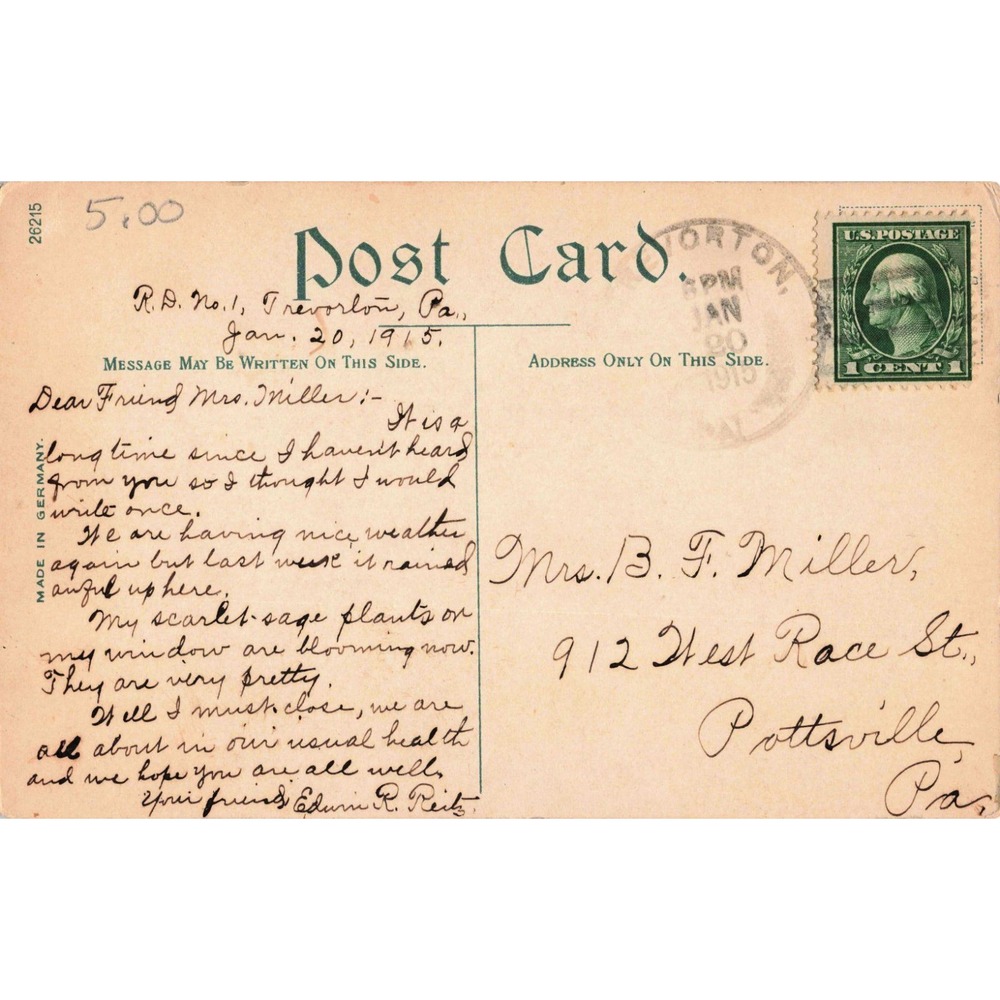 26215
5.00
Post Card.
R.D. No.1, Trevorton, Pa.,
Jan. 20, 1915.
MESSAGE MAY BE WRITTEN ON THIS SIDE.
Dear Friend Mrs. Miller:-
It is a
long time since I haven't heard
from you so I thought I would
write once.
We are having nice weather
again but last week it rained
awful up here.
My scarlet-sage plants on
my window are blooming now.
They are very pretty.
Well I must close, we are
all about in our usual health
and we hope you are all well.
Your friend Edwin R. Reitz.
MADE IN GERMANY.
ADDRESS ONLY ON THIS SIDE.
VORTON,
PM
JAN
20
1915
PA.
U.S. POSTAGE
1 CENT 1
Mrs. B. F. Miller,
912 West Race St.,
Pottsville,
Pa.